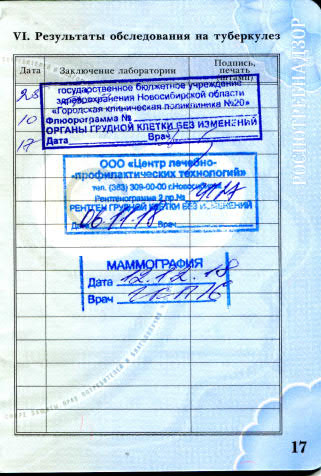 VI. Результаты обследования на туберкулез
Дата
Заключение лаборатории
Подпись,
печать
государственное бюджетное учреждение
здравоохранения Новосибирской области
«Городская клиническая поликлиника №20»
Флюорограмма №
ОРГАНЫ ГРУДНОЙ КЛЕТКИ БЕЗ ИЗМЕНЕНИЙ
Дата Врач
10
17
ООО «Центр лечебно-
профилактических технологий»
тел. (383) 309-00-00 г.Новосибирск
Рентгенограмма 2 пр.№
РЕНТГЕН ГРУДНОЙ КЛЕТКИ БЕЗ ИЗМЕНЕНИЙ
Дата 06.11.18 Врач
МАММОГРАФИЯ
Дата 12.12.18
Врач
РОСПОТРЕБНАДЗОР
17